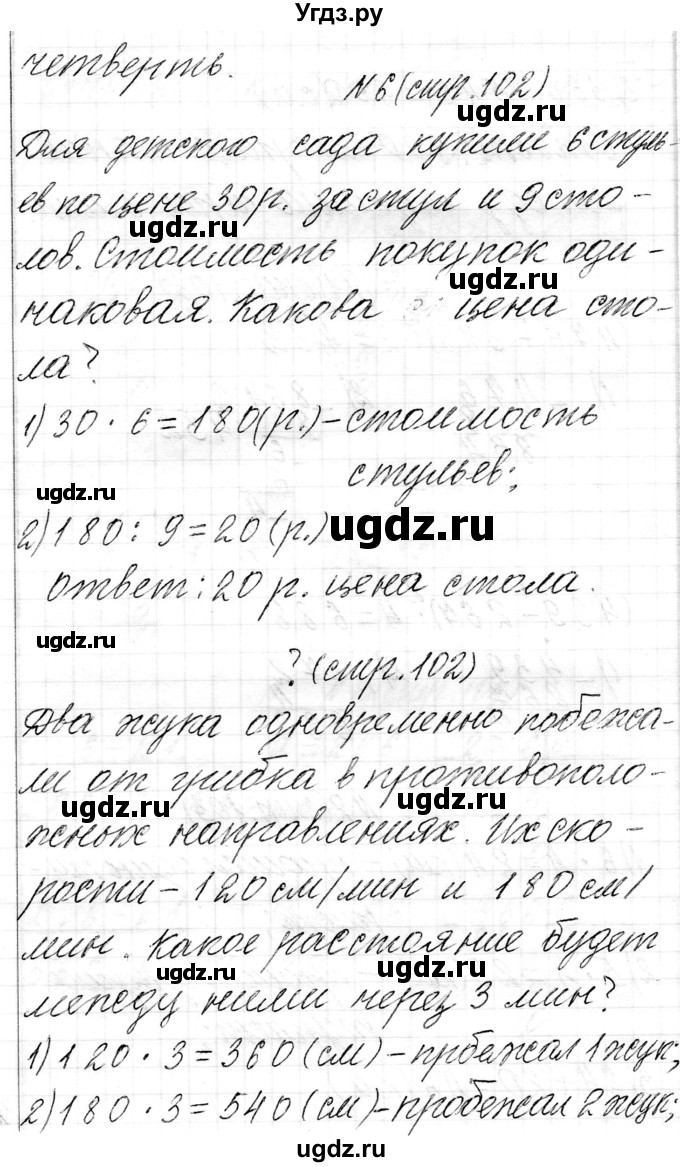 Угдз.ру
четверть.
№6 (стр.102)
ugdz.ru
Для детского сада купили 6 стуль-
ев по цене 30 р. за стул и 9 сто-
ugdz.ru
лов. Стоимость покупок оди-
ugdz.ru
наковая. Какова цена сто-
ла?
1) 30 · 6 = 180 (р.) – стоимость
стульев;
ugdz.ru
2) 180 : 9 = 20 (р.) ugdz.ru
ответ: 20 р. цена стола.
ugdz.ru
? (стр.102)
Два жука одновременно побежа-
ли от грибка в противополо-
ugdz.ru ugdz.ru
жных направлениях. Их ско-
рости – 120 см/мин и 180 см/
мин. Какое расстояние будет
ugdz.ru ugdz.ru
между ними через 3 мин?
1) 120 · 3 = 360 (см) – пробежал 1 жук;
2) 180 · 3 = 540 (см) – пробежал 2 жук;
ugdz.ru